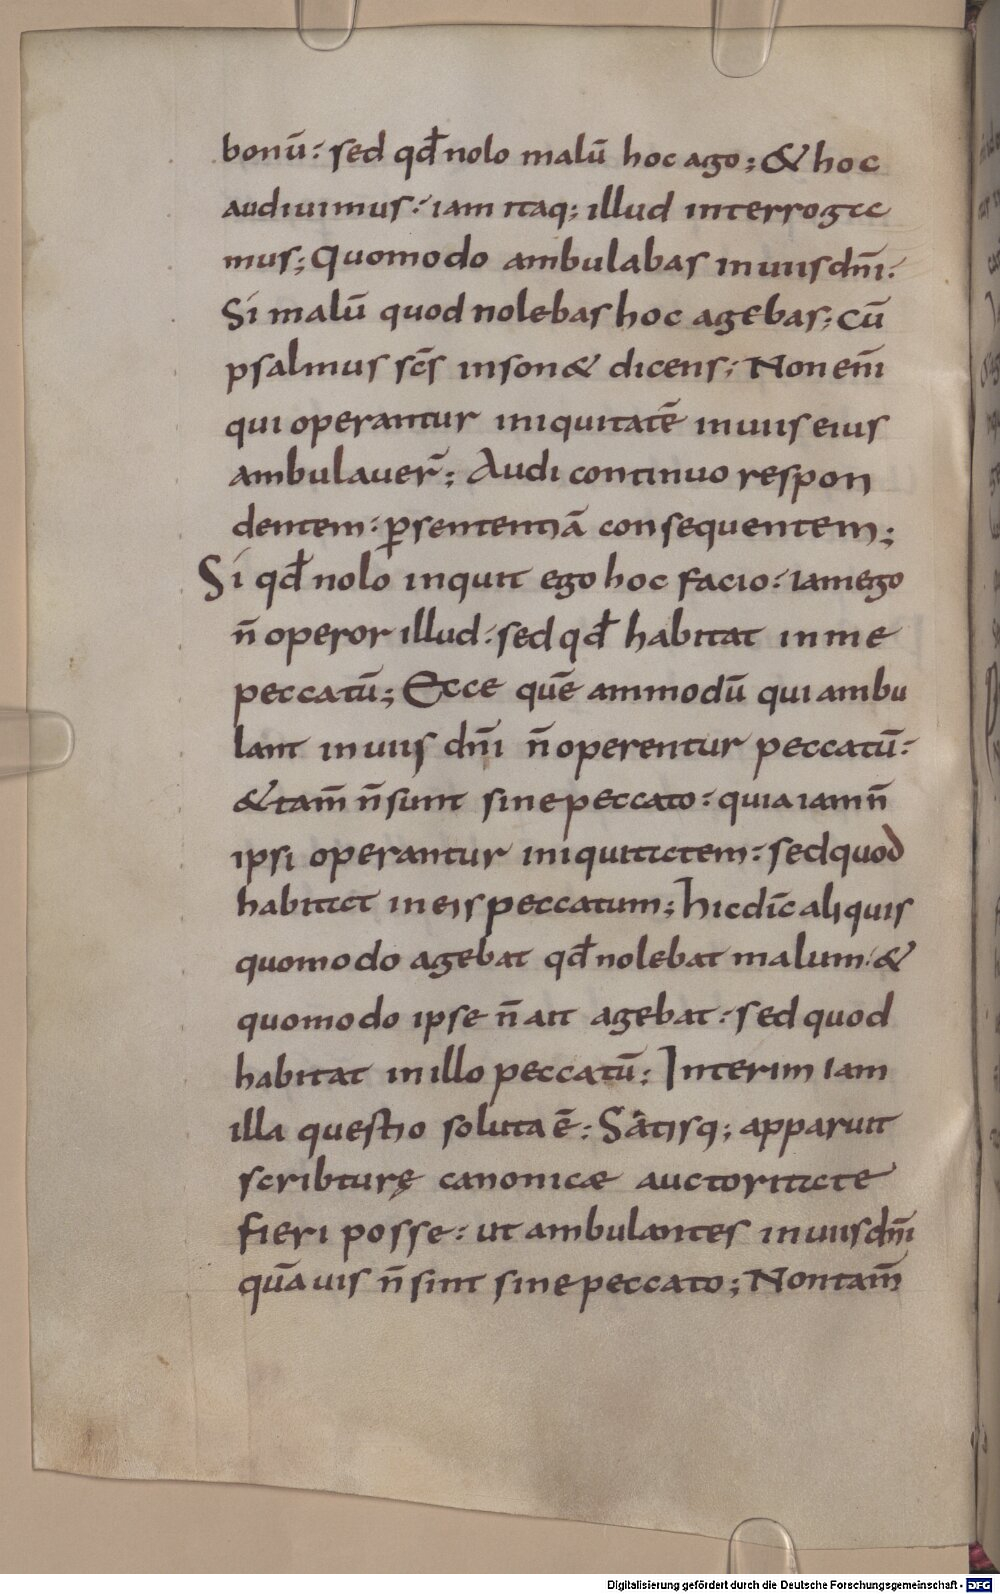 bonū: sed qđ nolo malū hoc ago; & hoc
audiuimus: iam itaq; illud interroga
mus; Quomodo ambulabas in uiis dn̄i:
Si malū quod nolebas hoc agebas; Cū
psalmus sc̄s inson& dicens; Non enī
qui operantur iniquitatē in uiis eius
ambulauer̄; Audi continuo respon
dentem: ꝑ sententiā consequentem;
Si qđ nolo inquit ego hoc facio: iam ego
n̄ operor illud: sed qđ habitat in me
peccatū; Ecce quē ammodū qui ambu
lant in uiis dn̄i n̄ operentur peccatū:
& tam̄ n̄ sunt sine peccato: quia iam n̄
ipsi operantur iniquitatem: sed quod
habitat in eis peccatum; hic dic̄ aliquis
quomodo agebat qđ nolebat malum: &
quomodo ipse n̄ ait agebat: sed quod
habitat in illo peccatū: Interim iam
illa questio soluta ē: Satisq; apparuit
scribturę canonicae auctoritate
fieri posse: ut ambulantes in uiis dn̄i
quāuis n̄ sint sine peccato; Non tam̄
Digitalisierung gefördert durch die Deutsche Forschungsgemeinschaft - DFG